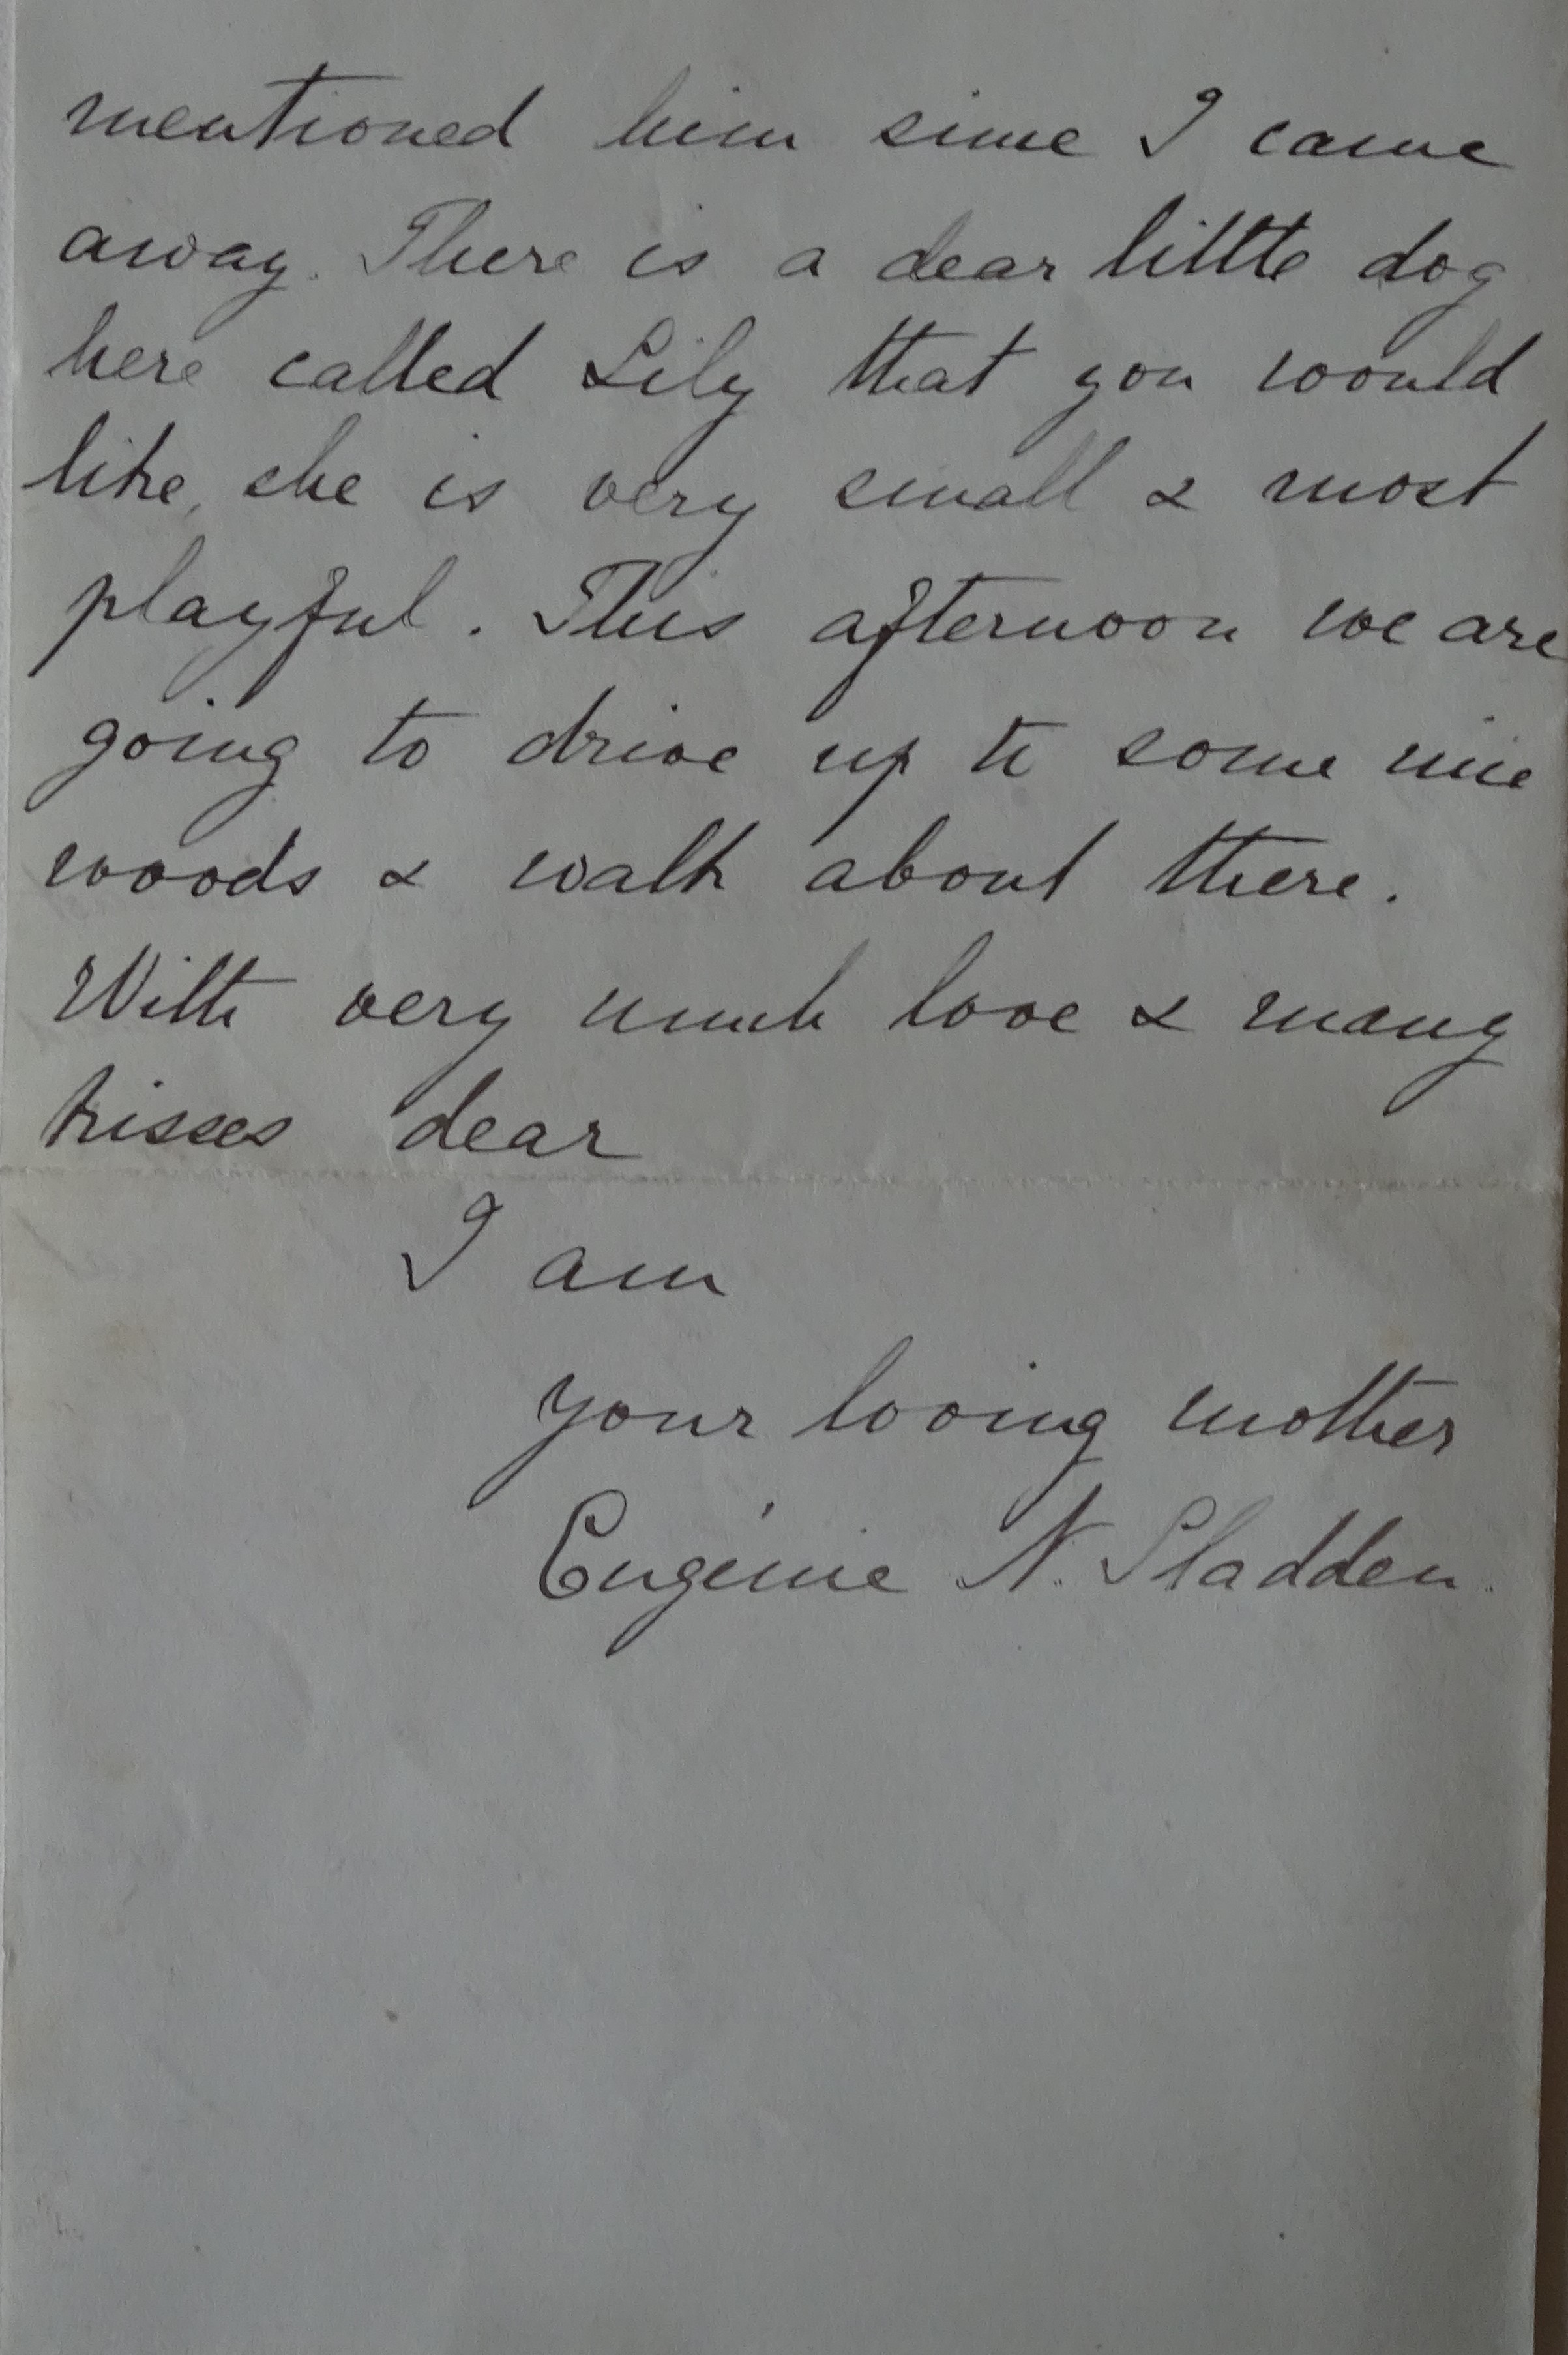 mentioned him since I came
away. There is a dear little dog
here called Lily that you would
like, she is very small & most
playful. This afternoon we are
going to drive up to some nice
woods & walk about there.
With very much love & many
kisses dear
I am
your loving mother
Eugénie N. Sladden.